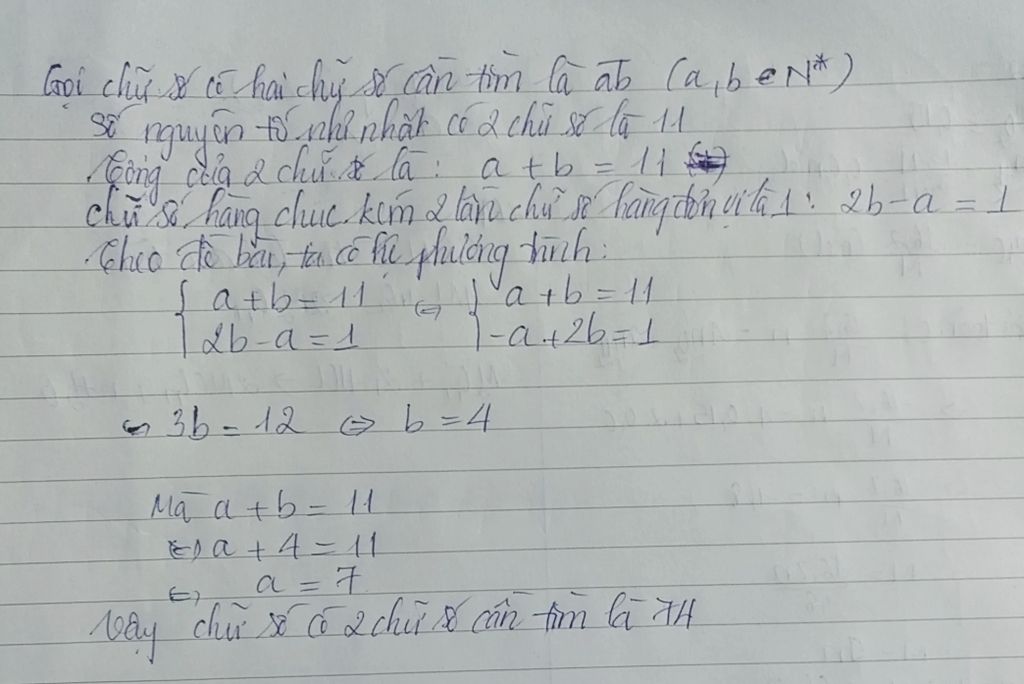 Gọi chữ số có hai chữ số cần tìm là ab (a,b ∈ N*)
Số nguyên tố nhỏ nhất có 2 chữ số là 11
Tổng của 2 chữ số là: a + b = 11
Chữ số hàng chục kém 2 lần chữ số hàng đơn vị là 1: 2b - a = 1
Theo đề bài, ta có hệ phương trình:
{ a + b = 11 ⇔ { a + b = 11
{ 2b - a = 1 { -a + 2b = 1
⇔ 3b = 12 ⇔ b = 4
Mà a + b = 11
⇔ a + 4 = 11
⇔ a = 7
Vậy chữ số có 2 chữ số cần tìm là 74